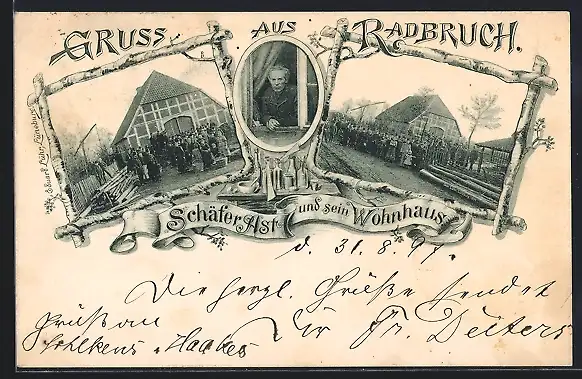 GRUSS AUS RADBRUCH.
Eduard Lühr, Lüneburg.
Schäfer Ast und sein Wohnhaus
d. 31.8.97.
Die herzl. Grüße sendet
Dir Fr. Deiters
Gruß an
Haakes